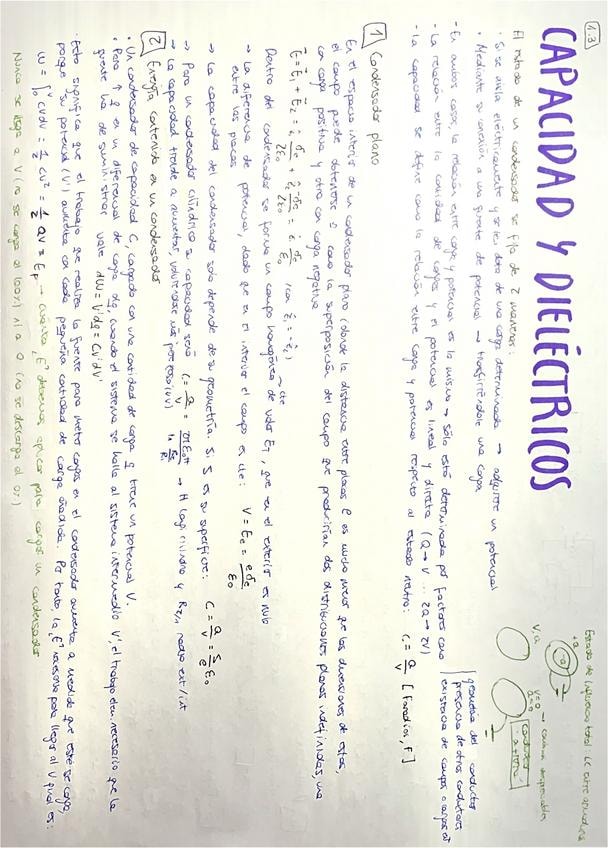 1.3
CAPACIDAD Y DIELÉCTRICOS
Estado de influencia total: LC entre armaduras
+Q
V, Q
V=0
Q=0
→ cargas despreciables
conductor a tierra
El estado de un condensador se fija de 2 maneras:
· Si se aisla eléctricamente y se le dota de una carga determinada → adquiere un potencial
· Mediante su conexión a una fuente de potencial → transfiriéndole una carga
- En ambos casos, la relación entre carga y potencial es la misma → sólo está determinada por factores como
geometría del conductor
presencia de otros conductores
existencia de campos o cargas ext
- La relación entre la cantidad de carga y el potencial es lineal y directa (Q→V ... 2Q→2V)
- La capacidad se define como la relación entre carga y potencial respecto al estado neutro: C = Q/V [Faradios, F]
1 Condensador plano
En el espacio interior de un condensador plano, donde la distancia entre placas e es mucho menor que las dimensiones de estas,
el campo puede obtenerse como la superposición del campo que producirían dos distribuciones planas indefinidas, una
con carga positiva y otra con carga negativa
E = E₁ + E₂ = î₁ σc/2ε₀ + î₂ σc/2ε₀ = î σc/ε₀ (con î₁ = -î₂)
→ cte
Dentro del condensador se forma un campo homogéneo de valor E₁, que en el exterior es nulo
→ La diferencia de potencial, dado que en el interior el campo es cte: V = Ee = eσc/ε₀
entre las placas
→ La capacidad del condensador solo depende de su geometría. Si S es su superficie: C = Q/V = S/e ε₀
→ Para un condensador cilíndrico su capacidad será C = Q/V = 2πε₀H / ln R₂/R₁ → H long cilindro y R₂,₁ radio ext/int
→ La capacidad tiende a aumentar, volviéndose más
2 Energía contenida en un condensador
· Un condensador de capacidad C, cargado con una cantidad de carga q tiene un potencial V.
· Para ↑ q en un diferencial de carga dq, cuando el sistema se halla al sistema intermedio V', el trabajo elem. necesario que la
fuente ha de suministrar vale dW = V'dq = CV'dV'
· Esto significa que el trabajo que realiza la fuente para meter cargas en el condensador aumenta a medida que este se carga,
porque su potencial (V') aumenta con cada pequeña cantidad de carga añadida. Por tanto, la E necesaria para llegar al V final es:
W = ∫₀ⱽ CV'dV' = 1/2 CV² = 1/2 QV = Eₚ → cuánta E debemos aplicar para cargar un condensador
Nunca se llega a V (no se carga al 100%) ni a 0 (no se descarga al 0%)